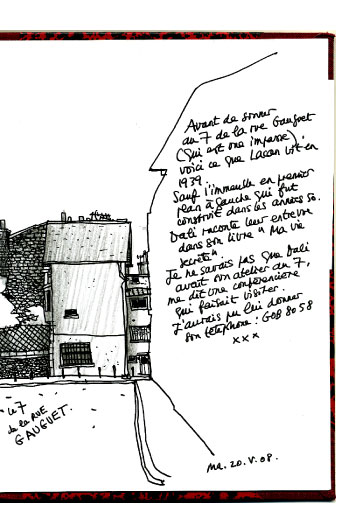 Avant de sonner
au 7 de la rue Gauguet
(qui est une impasse),
voici ce que Lacan vit en
1939.
Sauf l'immeuble en premier
plan à gauche qui fut
construit dans les années 50.
Dali raconte leur entrevue
dans son livre "Ma vie
secrète".
Je ne savais pas que Dali
avait son atelier au 7,
me dit une conférencière
qui faisait visiter.
J'aurais pu lui donner
son téléphone : GOB 80 58
x x x
Le 7
de la RUE
GAUGUET.
Ma. 20. V. 08.